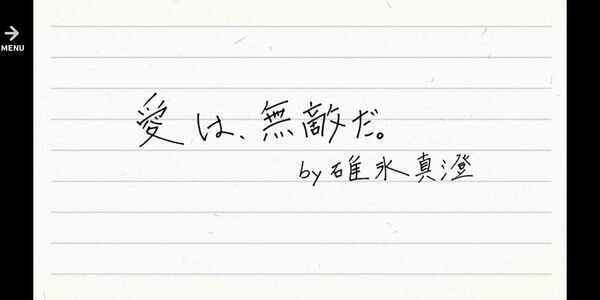 MENU
愛は、無敵だ。
by碓氷真澄